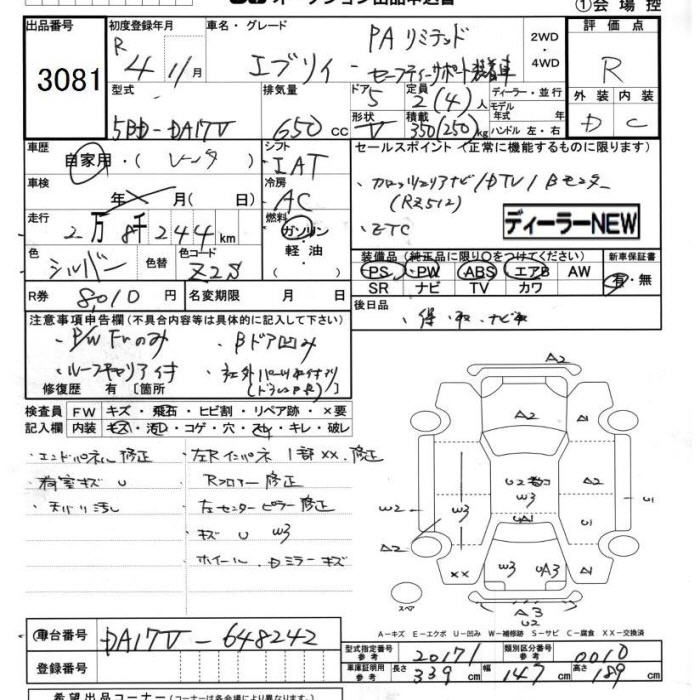 オークション出品申込書
①会場控
出品番号 初度登録年月 車名・グレード 評価点
3081 R 4年 11月 エブリィ PA リミテッド セーフティーサポート装着車 2WD・4WD R
型式 排気量 ドア 定員 ディーラー・並行 外装 内装
5BD-DA17V 650cc 5 2(4)人 モデル年式 年式 D C
形状 積載 ハンドル 左・右
V 350(250)kg
車歴 シフト セールスポイント (正常に機能するものに限ります)
自家用・( レンタ IAT
車検 冷房 ・カロッツェリアナビ/DTV/Bモニター
年 月( 日) AC (RZ512)
走行 燃料 ・ETC ディーラーNEW
2万8千244km ガソリン・軽油・( )
色 色替 色コード 装備品 (純正品に限り○をつけてください) 新車保証書
シルバー Z2S PS PW ABS エアB AW 有・無
SR ナビ TV カワ
R券 8,010円 名変期限 月 日 後日品
注意事項申告欄 (不具合内容等は具体的に記入して下さい) ・保・取・ナビ取
・P/W Frのみ ・Bドア凹み
・ルーフキャリア付 ・社外パーツ取付け有り
(ドラレコ P R)
修復歴 有 [箇所 ]
検査員 FW キズ・飛石・ヒビ割・リペア跡・×要
記入欄 内装 キズ・汚レ・コゲ・穴・スレ・キレ・破レ
・エンドパネル修正 ・左Rインパネ 1部××.修正
・荷室キズ U Rフロアー修正
・天バリ汚レ 左センターピラー修正
キズ U W3
ホイール・Dミラーキズ
A2
A2 A1
U2 W3 A2
W2 W3 UA1 U1 U1
A2 XX W3 UA3 A1 A1
スペア
A3
U2
A-キズ E-エクボ U-凹み W-補修跡 S-サビ C-腐食 XX-交換済
車台番号 DA17V-648242
型式指定番号 参考 20171 類別区分番号 参考 0010
登録番号
車庫証明用 参考 長さ 339cm 幅 147cm 高さ 189cm
希望出品コーナー (コーナーは各会場により異なります)